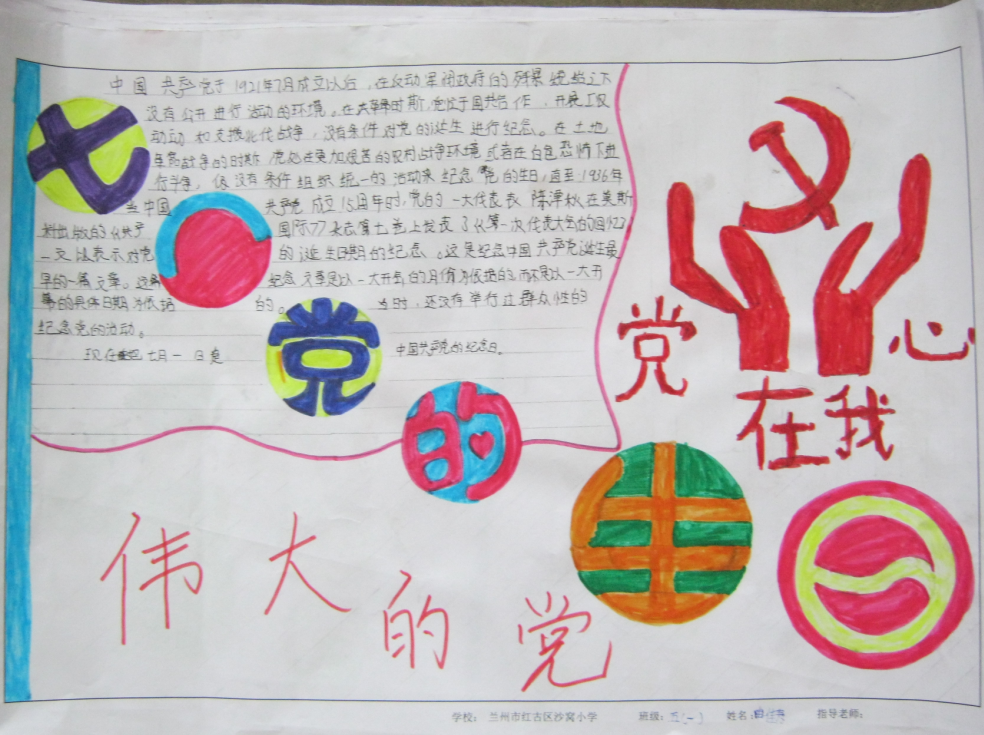 中国共产党于1921年7月成立以后,在反动军阀政府的残暴统治之下
没有公开进行活动的环境。在大革命时期,党忙于国共合作、开展工农
动动和支援北伐战争,没有条件对党的诞生进行纪念。在土地
革命战争的时期,党处在更加艰苦的农村战争环境或者在白色恐怖下进
行斗争,没有条件组织统一的活动来纪念党的生日,直至1936年
当中国共产党成立15周年时,党的一大代表陈潭秋在莫斯
国际》杂志第七 上发表了《第一次代表大会的回忆》
一文 表示对党的诞生日期的纪念。这是纪念中国共产党诞生最
早的一篇文章。这 纪念文章是以一大开会的月份为依据的,而不是以一大开
的具体日期为依据的。当时,还没有举行过群众性的
纪念党的活动。
现在 七月一日是中国共产党的纪念日。
七
一
党
的
生
日
党
在我
心
伟大的党
学校: 兰州市红古区沙窝小学 班级:五(一) 姓名: 指导老师: